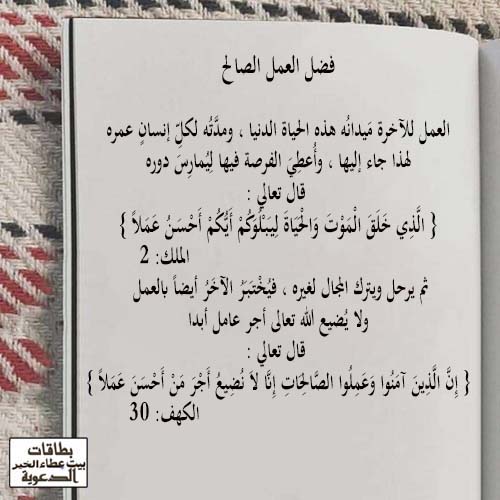 فضل العمل الصالح
العمل للآخرة مَيدانُه هذه الحياة الدنيا ، ومدَّتُه لكلِّ إنسانٍ عمره
لهذا جاء إليها ، وأُعطِيَ الفرصة فيها لِيُمارِسَ دوره
قال تعالي :
{ الَّذِي خَلَقَ الْمَوْتَ وَالْحَيَاةَ لِيَبْلُوَكُمْ أَيُّكُمْ أَحْسَنُ عَمَلاً }
الملك: 2
ثم يرحل ويترك المجال لغيره ، فيُخْتبَرُ الآخَرُ أيضاً بالعمل
ولا يُضيع الله تعالى أجر عامل أبدا
قال تعالي :
{ إِنَّ الَّذِينَ آمَنُوا وَعَمِلُوا الصَّالِحَاتِ إِنَّا لاَ نُضِيعُ أَجْرَ مَنْ أَحْسَنَ عَمَلاً }
الكهف: 30
بطاقات
بيت عطاء الخير
الدعوية